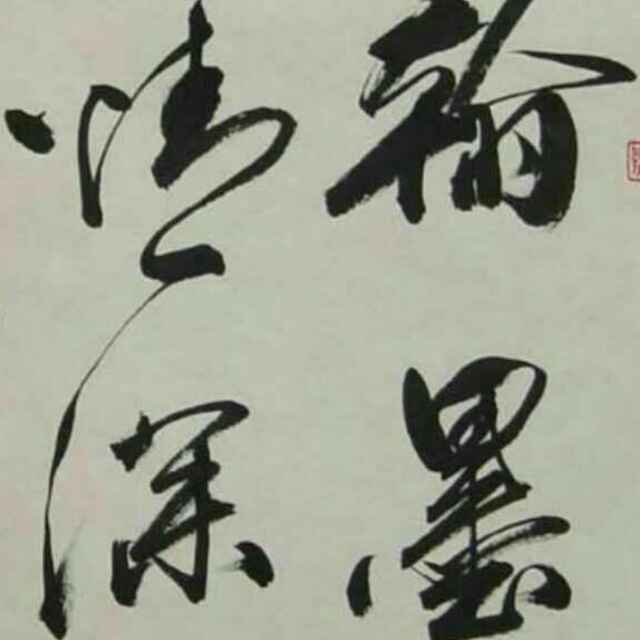 翰墨
情深